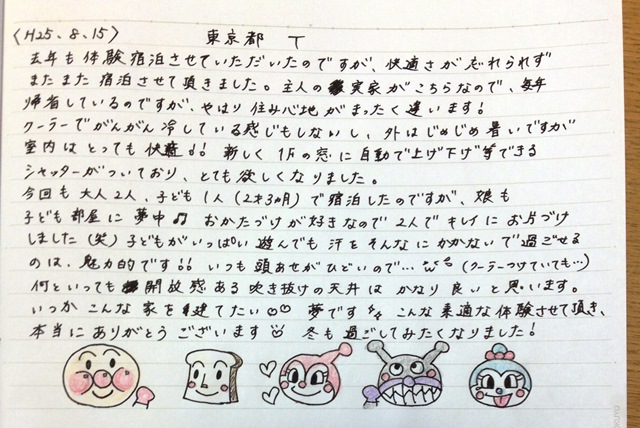 〈H25.8.15〉 東京都 T
去年も体験宿泊させていただいたのですが、快適さが忘れられず
またまた宿泊させて頂きました。主人の実家がこちらなので、毎年
帰省しているのですが、やはり住み心地がまったく違います!
クーラーでがんがん冷している感じもしないし、外はじめじめ暑いですが
室内はとっても快適!! 新しく1Fの窓に自動で上げ下げ等できる
シャッターがついており、とても欲しくなりました。
今回も大人2人、子ども1人(2才3ヵ月)で宿泊したのですが、娘も
子ども部屋に夢中♫ おかたづけが好きなので2人でキレイにお片づけ
しました(笑)子どもがいっぱい遊んでも汗をそんなにかかないで過ごせる
のは、魅力的です!! いつも頭あせがひどいので…(クーラーつけていても…)
何といっても開放感ある吹き抜けの天井はかなり良いと思います。
いつかこんな家を建てたい 夢です こんな素適な体験させて頂き、
本当にありがとうございます 冬も過ごしてみたくなりました!